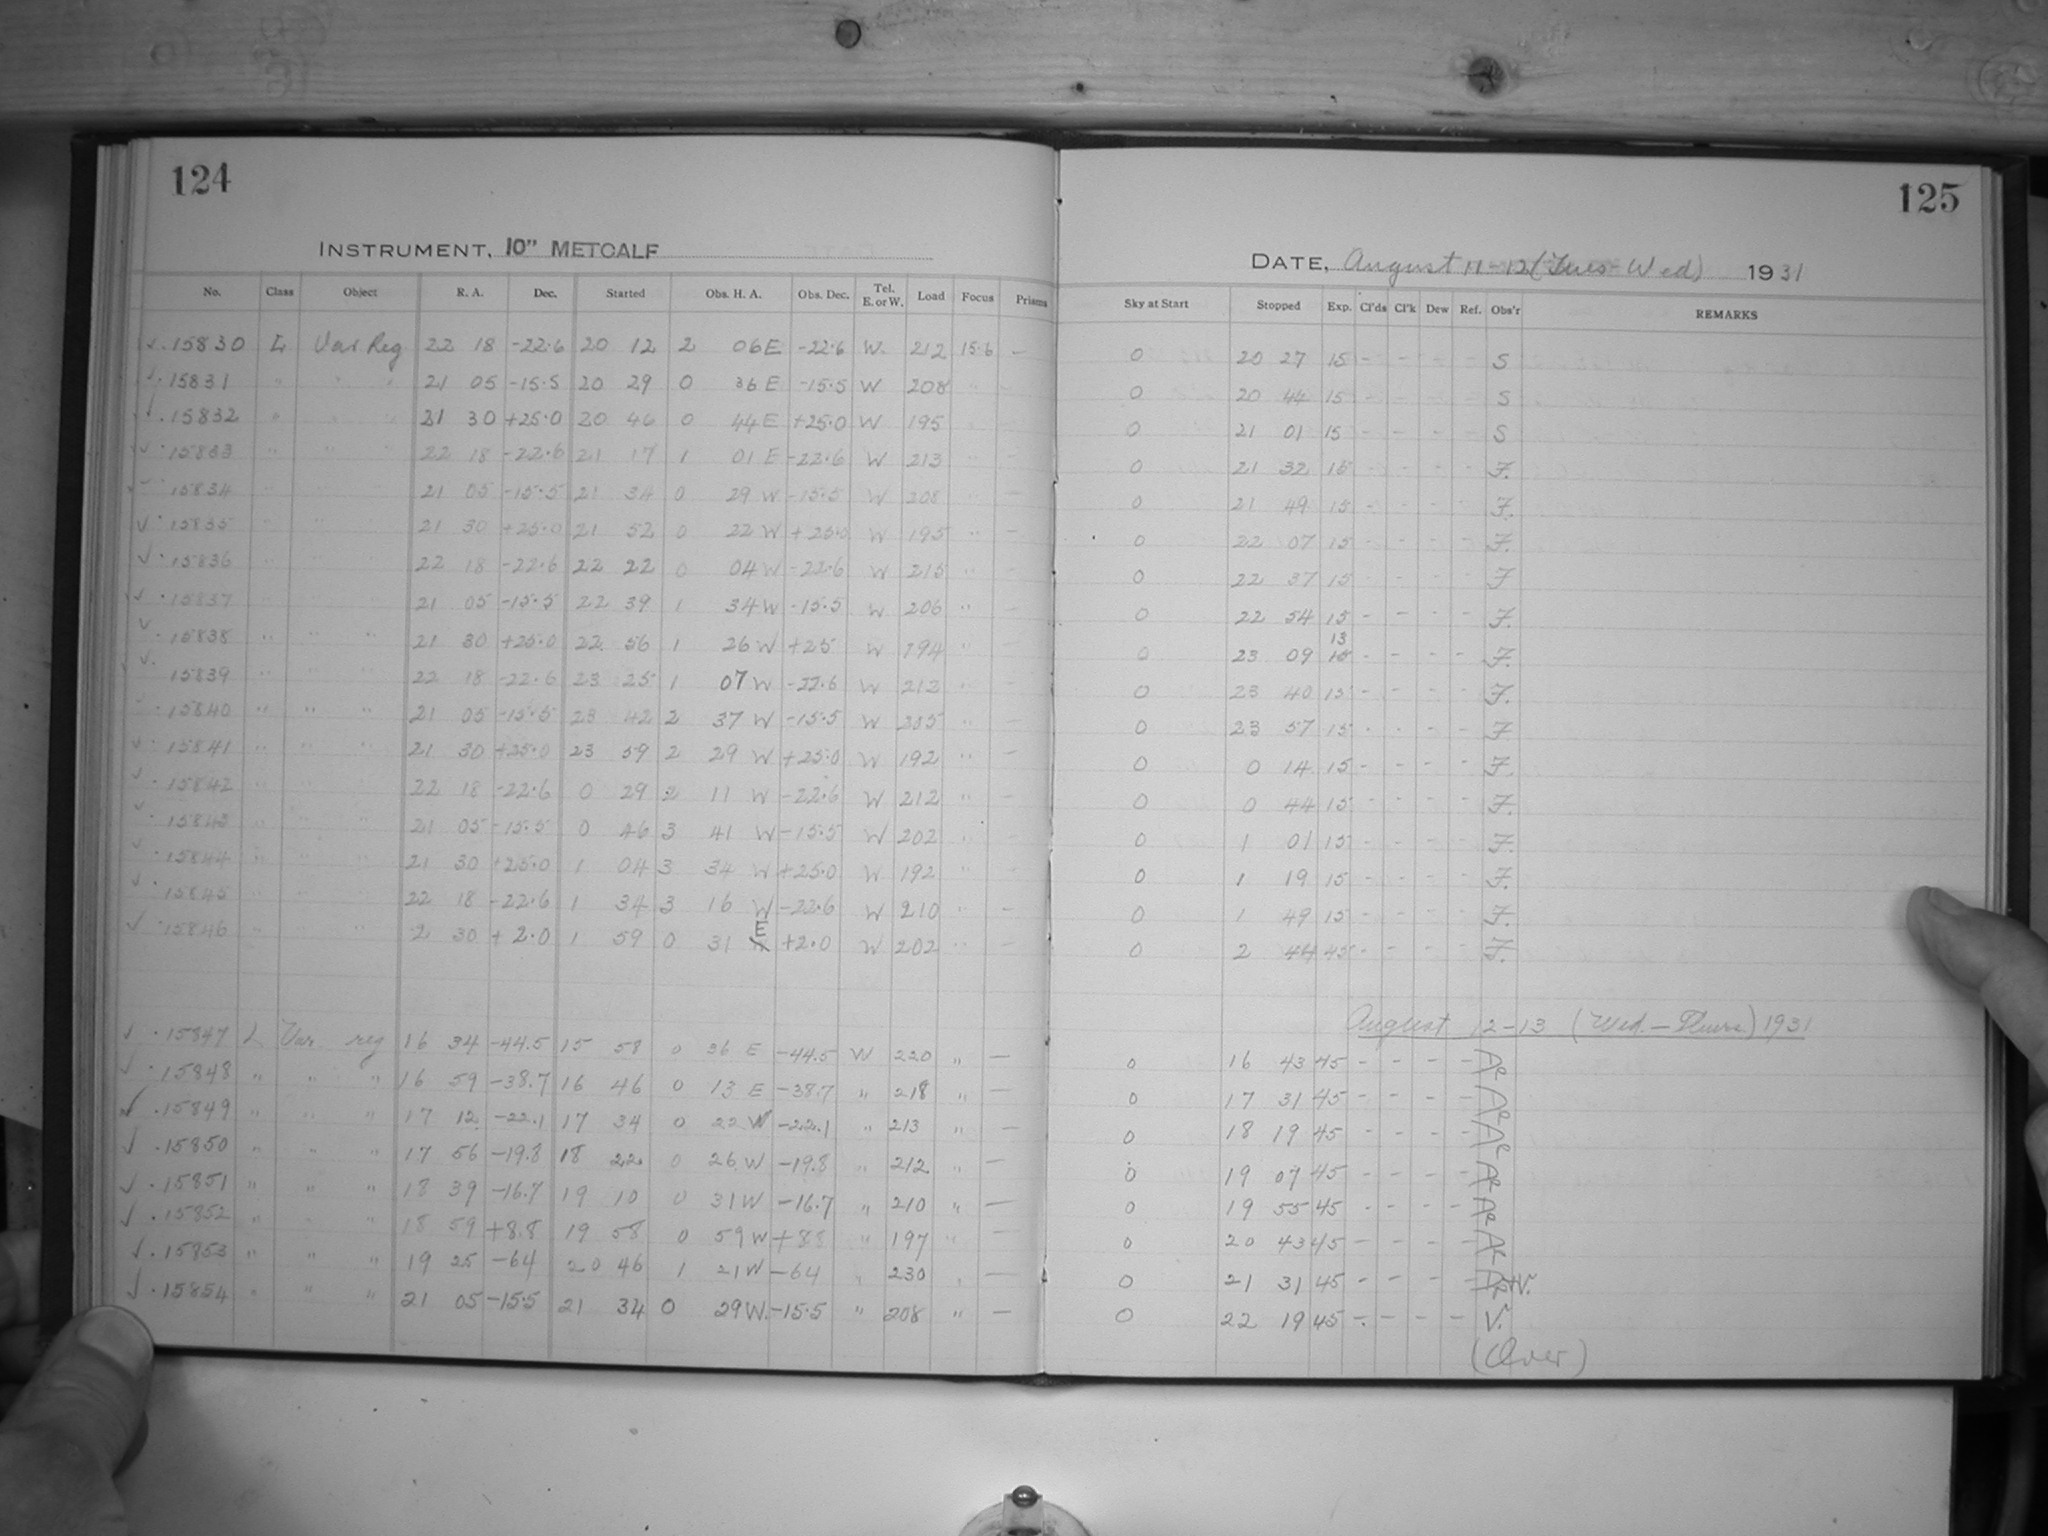 124
125
INSTRUMENT, 10" METCALF
DATE, August 11-12 (Tues-Wed) 1931
No. Class Object R. A. Dec. Started Obs. H. A. Obs. Dec. Tel. E. or W. Load Focus Prisms Sky at Start Stopped Exp. Cl'ds Cl'k Dew Ref. Obs'r REMARKS
✓ . 15830 L Var Reg 22 18 -22.6 20 12 2 06 E -22.6 W. 212 15.6 — 0 20 27 15 - - - - S
✓ . 15831 " " " 21 05 -15.5 20 29 0 36 E -15.5 W 208 " - 0 20 44 15 - - - - S
✓ . 15832 " " " 21 30 +25.0 20 46 0 44 E +25.0 W 195 " - 0 21 01 15 - - - - S
✓ . 15833 " " " 22 18 -22.6 21 17 1 01 E -22.6 W 213 " - 0 21 32 15 - - - - F.
✓ . 15834 " " " 21 05 -15.5 21 34 0 29 W -15.5 W 208 " - 0 21 49 15 - - - - F.
✓ . 15835 " " " 21 30 +25.0 21 52 0 22 W +25.0 W 195 " - 0 22 07 15 - - - - F.
✓ . 15836 " " " 22 18 -22.6 22 22 0 04 W -22.6 W 215 " - 0 22 37 15 - - - - F
✓ . 15837 " " " 21 05 -15.5 22 39 1 34 W -15.5 W 206 " - 0 22 54 15 - - - - F.
✓ . 15838 " " " 21 30 +25.0 22 56 1 26 W +25 W 194 " - 0 23 09 13 15 - - - - F.
✓ . 15839 " " " 22 18 -22.6 23 25 1 07 W -22.6 W 212 " - 0 23 40 15 - - - - F.
✓ . 15840 " " " 21 05 -15.5 23 42 2 37 W -15.5 W 205 " - 0 23 57 15 - - - - F.
✓ . 15841 " " " 21 30 +25.0 23 59 2 29 W +25.0 W 192 " - 0 0 14 15 - - - - F.
✓ . 15842 " " " 22 18 -22.6 0 29 2 11 W -22.6 W 212 " - 0 0 44 15 - - - - F.
✓ . 15843 " " " 21 05 -15.5 0 46 3 41 W -15.5 W 202 " - 0 1 01 15 - - - - F.
✓ . 15844 " " " 21 30 +25.0 1 04 3 34 W +25.0 W 192 " - 0 1 19 15 - - - - F.
✓ . 15845 " " " 22 18 -22.6 1 34 3 16 W -22.6 W 210 " - 0 1 49 15 - - - - F.
✓ . 15846 " " " 2 30 +2.0 1 59 0 31 E +2.0 W 202 " - 0 2 44 45 - - - - F.
August 12-13 (Wed.-Thurs.) 1931
✓ . 15847 L Var reg 16 34 -44.5 15 58 0 36 E -44.5 W 220 " — 0 16 43 45 - - - -
✓ . 15848 " " " 16 59 -38.7 16 46 0 13 E -38.7 " 218 " — 0 17 31 45 - - - -
✓ . 15849 " " " 17 12 -22.1 17 34 0 22 W -22.1 " 213 " — 0 18 19 45 - - - -
✓ . 15850 " " " 17 56 -19.8 18 22 0 26 W -19.8 " 212 " — 0 19 07 45 - - - -
✓ . 15851 " " " 18 39 -16.7 19 10 0 31 W -16.7 " 210 " — 0 19 55 45 - - - -
✓ . 15852 " " " 18 59 +8.8 19 58 0 59 W +8.8 " 197 " — 0 20 43 45 - - - -
✓ . 15853 " " " 19 25 -64 20 46 1 21 W -64 " 230 " — 0 21 31 45 - - - -
✓ . 15854 " " " 21 05 -15.5 21 34 0 29 W. -15.5 " 208 " — 0 22 19 45 - - - - V.
(Over)